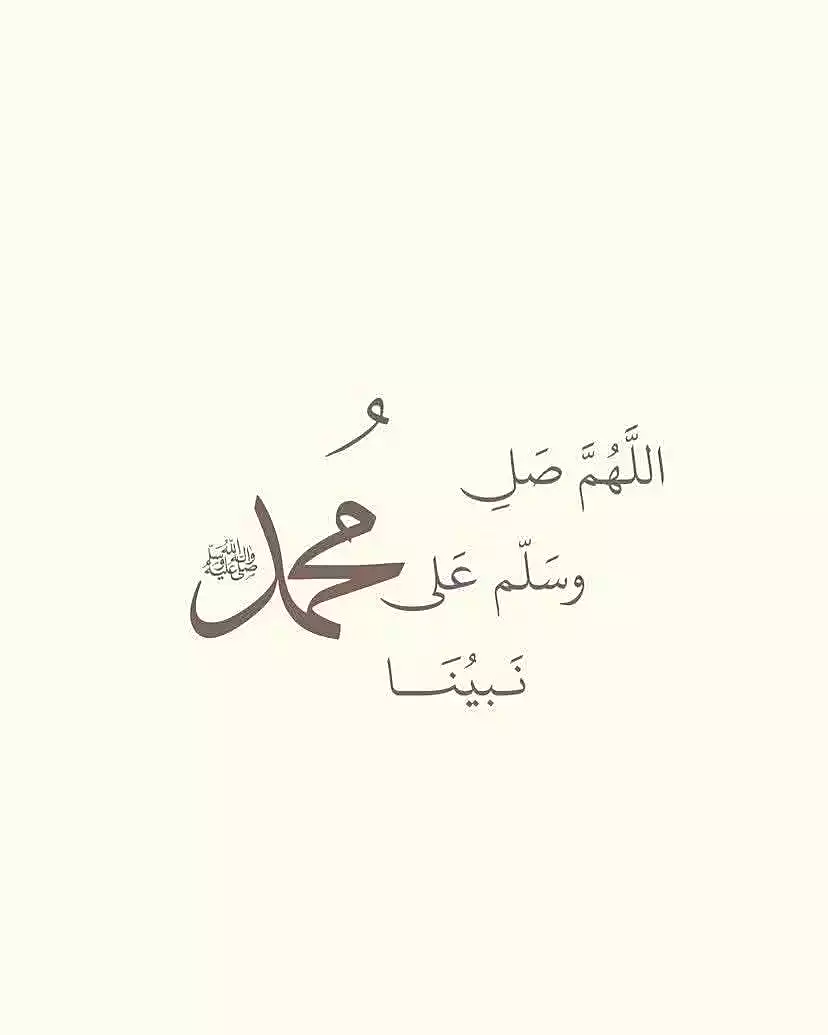 اللَّهُمَّ صَلِ
وسَلّم عَلى
نَـبيُنَـــا
محمدُ ﷺ